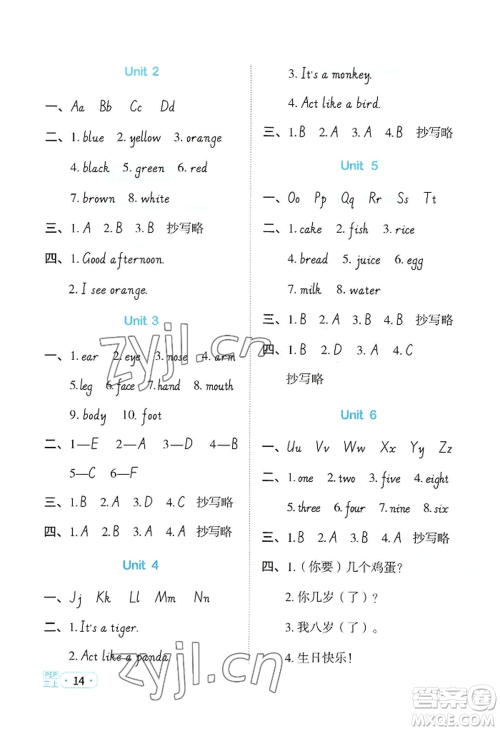 Unit 2
一、Aa Bb Cc Dd
二、1. blue 2. yellow 3. orange
4. black 5. green 6. red
7. brown 8. white
三、1. A 2. B 3. B 抄写略
四、1. Good afternoon.
2. I see orange.
Unit 3
一、1. ear 2. eye 3. nose 4. arm
5. leg 6. face 7. hand 8. mouth
9. body 10. foot
二、1—E 2—A 3—D 4—B
5—C
三、1. B 2. A 3. D 4. C 抄写略
四、1. A 2. B 3. A 抄写略
Unit 4
一、Jj Kk Ll Mm Nn
二、1. It's a tiger.
2. Act like a panda.
3. It's a monkey.
4. Act like a bird.
三、1. B 2. A 3. A 抄写略
Unit 5
一、Oo Pp Qq Rr Ss Tt
二、1. cake 2. fish 3. rice
4. bread 5. juice 6. egg
7. milk 8. water
三、1. A 2. B 3. B 抄写略
四、1. B 2. D 3. A 4. C
抄写略
Unit 6
一、Uu Vv Ww Xx Yy Zz
二、1. one 2. two 3. five 4. eight
5. three 6. four 7. nine 8. six
三、1. B 2. A 3. B 抄写略
四、1.（你要）几个鸡蛋?
2. 你几岁（了）?
3. 我八岁（了）。
4. 生日快乐!
PEP
三上
14
zyjl.cn
zyjl.cn
答案圈
MXQE.COM